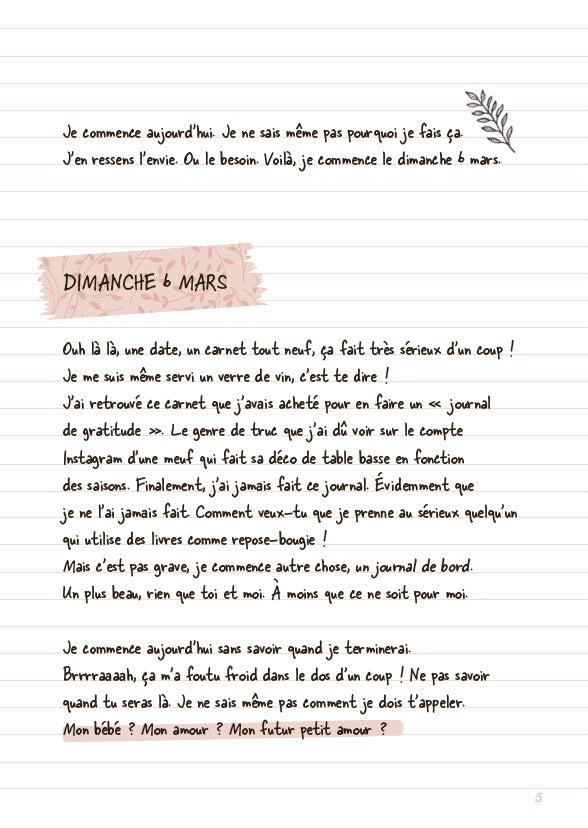 Je commence aujourd'hui. Je ne sais même pas pourquoi je fais ça.
J'en ressens l'envie. Ou le besoin. Voilà, je commence le dimanche 6 mars.
DIMANCHE 6 MARS
Ouh là là, une date, un carnet tout neuf, ça fait très sérieux d'un coup !
Je me suis même servi un verre de vin, c'est te dire !
J'ai retrouvé ce carnet que j'avais acheté pour en faire un « journal
de gratitude ». Le genre de truc que j'ai dû voir sur le compte
Instagram d'une meuf qui fait sa déco de table basse en fonction
des saisons. Finalement, j'ai jamais fait ce journal. Évidemment que
je ne l'ai jamais fait. Comment veux-tu que je prenne au sérieux quelqu'un
qui utilise des livres comme repose-bougie !
Mais c'est pas grave, je commence autre chose, un journal de bord.
Un plus beau, rien que toi et moi. À moins que ce ne soit pour moi.
Je commence aujourd'hui sans savoir quand je terminerai.
Brrrraaaah, ça m'a foutu froid dans le dos d'un coup ! Ne pas savoir
quand tu seras là. Je ne sais même pas comment je dois t'appeler.
Mon bébé ? Mon amour ? Mon futur petit amour ?
5